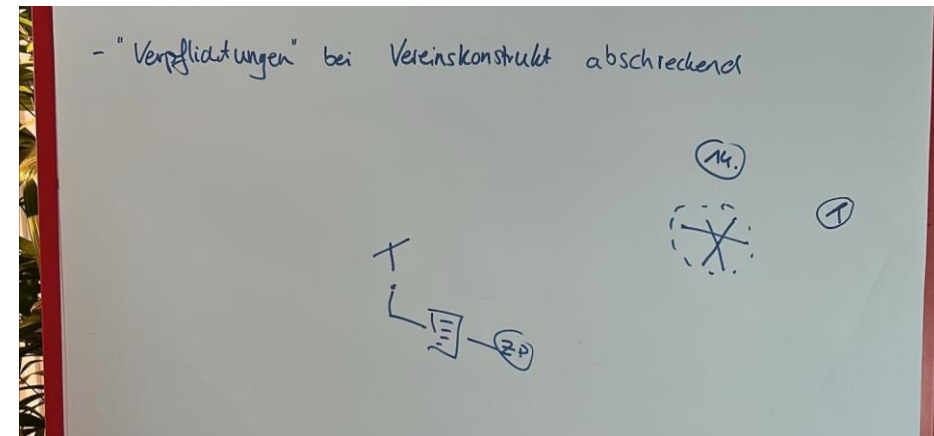 - "Verpflichtungen" bei Vereinskonstrukt abschreckend
14.
T
T
ZP